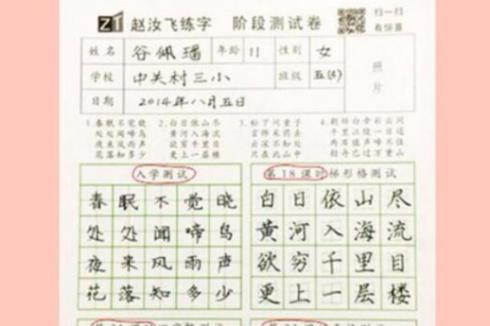 ZT 赵汝飞练字 阶段测试卷 扫一扫
有惊喜
姓名 谷佩 年龄 11 性别 女 照
学校 中关村三小 班级 五(4) 片
日期 2014年八月五日
1.春眠不觉晓 2.白日依山尽 3.松下问童子 4.朝辞白帝彩云间
处处闻啼鸟 黄河入海流 言师采药去 千里江陵一日还
夜来风雨声 欲穷千里目
花落知多少 更上一层楼
入学测试 第18课时梯形格测试
春眠不觉晓 白日依山尽
处处闻啼鸟 黄河入海流
夜来风雨声 欲穷千里目
花落知多少 更上一层楼